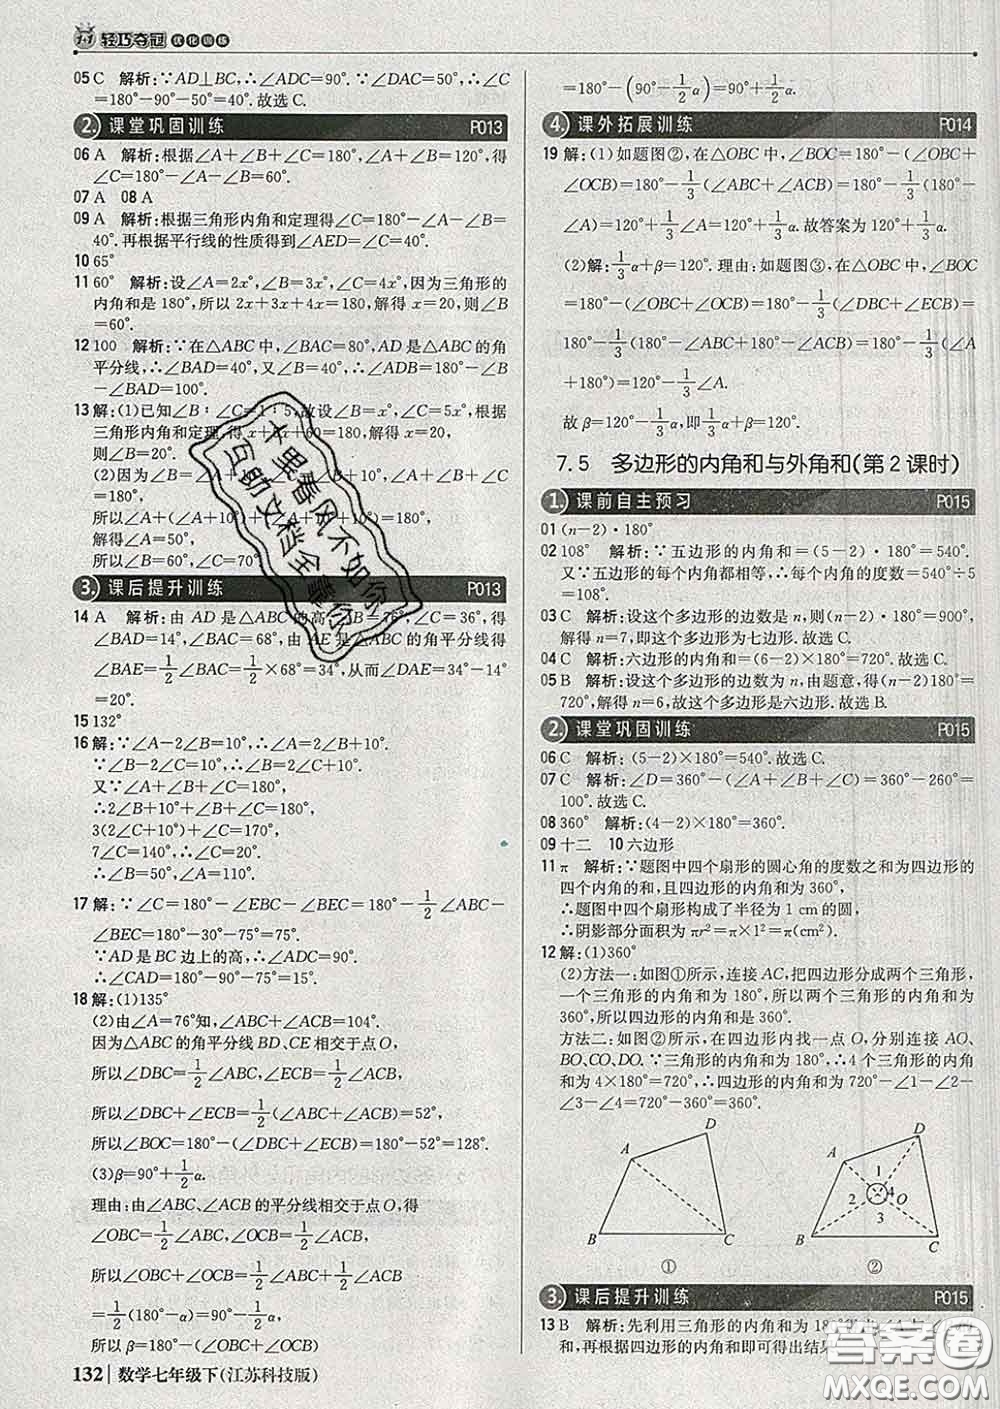 1+1 轻巧夺冠 优化训练
05 C 解析:∵AD⊥BC,∴∠ADC=90°.∵∠DAC=50°,∴∠C
=180°-90°-50°=40°.故选C.
2. 课堂巩固训练 P013
06 A 解析:根据∠A+∠B+∠C=180°,∠A+∠B=120°,得
∠C=180°-∠A-∠B=60°.
07 A 08 A
09 A 解析:根据三角形内角和定理得∠C=180°-∠A-∠B=
40°.再根据平行线的性质得到∠AED=∠C=40°.
10 65°
11 60° 解析:设∠A=2x°,∠B=3x°,∠C=4x°,因为三角形的
内角和是180°,所以2x+3x+4x=180,解得x=20,则∠B
=60°.
12 100 解析:∵在△ABC中,∠BAC=80°,AD是△ABC的角
平分线,∴∠BAD=40°,又∠B=40°,∴∠ADB=180°-∠B
-∠BAD=100°.
13 解:(1)已知∠B∶∠C=1∶5,故设∠B=x°,∠C=5x°,根据
三角形内角和定理,得x+5x+60=180,解得x=20,
则∠B=20°.
(2)因为∠C-∠B=
所以∠A+(∠A+10°)+ =180°,
解得∠A=50°,
所以∠B=60°.
3. 课后提升训练 P013
14 A 解析:由AD是△ABC的高,∠B=76°,∠C=36°,得
∠BAD=14°,∠BAC=68°,由AE是△ABC的角平分线得
∠BAE=1/2∠BAC=1/2×68°=34°,从而∠DAE=34°-14°
=20°.
15 132°
16 解:∵∠A-2∠B=10°,∴∠A=2∠B+10°.
∵∠B-2∠C=10°,∴∠B=2∠C+10°.
又∵∠A+∠B+∠C=180°,
∴2∠B+10°+∠B+∠C=180°,
3(2∠C+10°)+∠C=170°,
7∠C=140°,∴∠C=20°,
∴∠B=50°,∴∠A=110°.
17 解:∵∠C=180°-∠EBC-∠BEC=180°-1/2∠ABC-
∠BEC=180°-30°-75°=75°.
∵AD是BC边上的高,∴∠ADC=90°.
∴∠CAD=180°-90°-75°=15°.
18 解:(1)135°
(2)由∠A=76°知,∠ABC+∠ACB=104°.
因为△ABC的角平分线BD、CE相交于点O,
所以∠DBC=1/2∠ABC,∠ECB=1/2∠ACB,
所以∠DBC+∠ECB=1/2(∠ABC+∠ACB)=52°,
所以∠BOC=180°-(∠DBC+∠ECB)=180°-52°=128°.
(3)β=90°+1/2α.
理由:由∠ABC、∠ACB的平分线相交于点O,得
∠OBC=1/2∠ABC,∠OCB=1/2∠ACB,
所以∠OBC+∠OCB=1/2∠ABC+1/2∠ACB
=1/2(180°-α)=90°-1/2α,
所以β=180°-(∠OBC+∠OCB)
132 数学七年级下(江苏科技版)
=180°-(90°-1/2α)=90°+1/2α.
4. 课外拓展训练 P014
19 解:(1)如题图②,在△OBC中,∠BOC=180°-(∠OBC+
∠OCB)=180°-1/3(∠ABC+∠ACB)=180°-1/3(180°-
∠A)=120°+1/3∠A=120°+1/3α.故答案为120°+1/3α.
(2)解:1/3α+β=120°.理由:如题图③,在△OBC中,∠BOC
=180°-(∠OBC+∠OCB)=180°-1/3(∠DBC+∠ECB)=
180°-1/3(180°-∠ABC+180°-∠ACB)=180°-1/3(∠A
+180°)=120°-1/3∠A.
故β=120°-1/3α,即1/3α+β=120°.
7.5 多边形的内角和与外角和(第2课时)
1. 课前自主预习 P015
01 (n-2)·180°
02 108° 解析:∵五边形的内角和=(5-2)·180°=540°.
又∵五边形的每个内角都相等,∴每个内角的度数=540°÷5
=108°.
03 C 解析:设这个多边形的边数是n,则(n-2)·180°=900°,
解得n=7,即这个多边形为七边形.故选C.
04 C 解析:六边形的内角和=(6-2)×180°=720°.故选C.
05 B 解析:设这个多边形的边数为n,由题意,得(n-2)180°=
720°,解得n=6,故这个多边形是六边形.故选B.
2. 课堂巩固训练 P015
06 C 解析:(5-2)×180°=540°.故选C.
07 C 解析:∠D=360°-(∠A+∠B+∠C)=360°-260°=
100°.故选C.
08 360° 解析:(4-2)×180°=360°.
09 十二 10 六边形
11 π 解析:∵题图中四个扇形的圆心角的度数之和为四边形的
四个内角的和,且四边形的内角和为360°,
∴题图中四个扇形构成了半径为1 cm的圆,
∴阴影部分面积为πr²=π×1²=π(cm²).
12 解:(1)360°
(2)方法一:如图①所示,连接AC,把四边形分成两个三角形,
一个三角形的内角和为180°,所以两个三角形的内角和为
360°,所以四边形的内角和是360°.
方法二:如图②所示,在四边形内找一点O,分别连接AO、
BO、CO、DO.∵三角形的内角和为180°,∴4个三角形的内角
和为4×180°=720°,∴四边形的内角和为720°-∠1-∠2-
∠3-∠4=720°-360°=360°.
A D B C ①
A D B C O 1 2 3 4 ②
3. 课后提升训练 P015
13 B 解析:先利用三角形的内角和为180°
和,再根据四边形的内角和即可得出结果
十里春风不如你
互助文档全靠你
答案圈
MXQE.COM